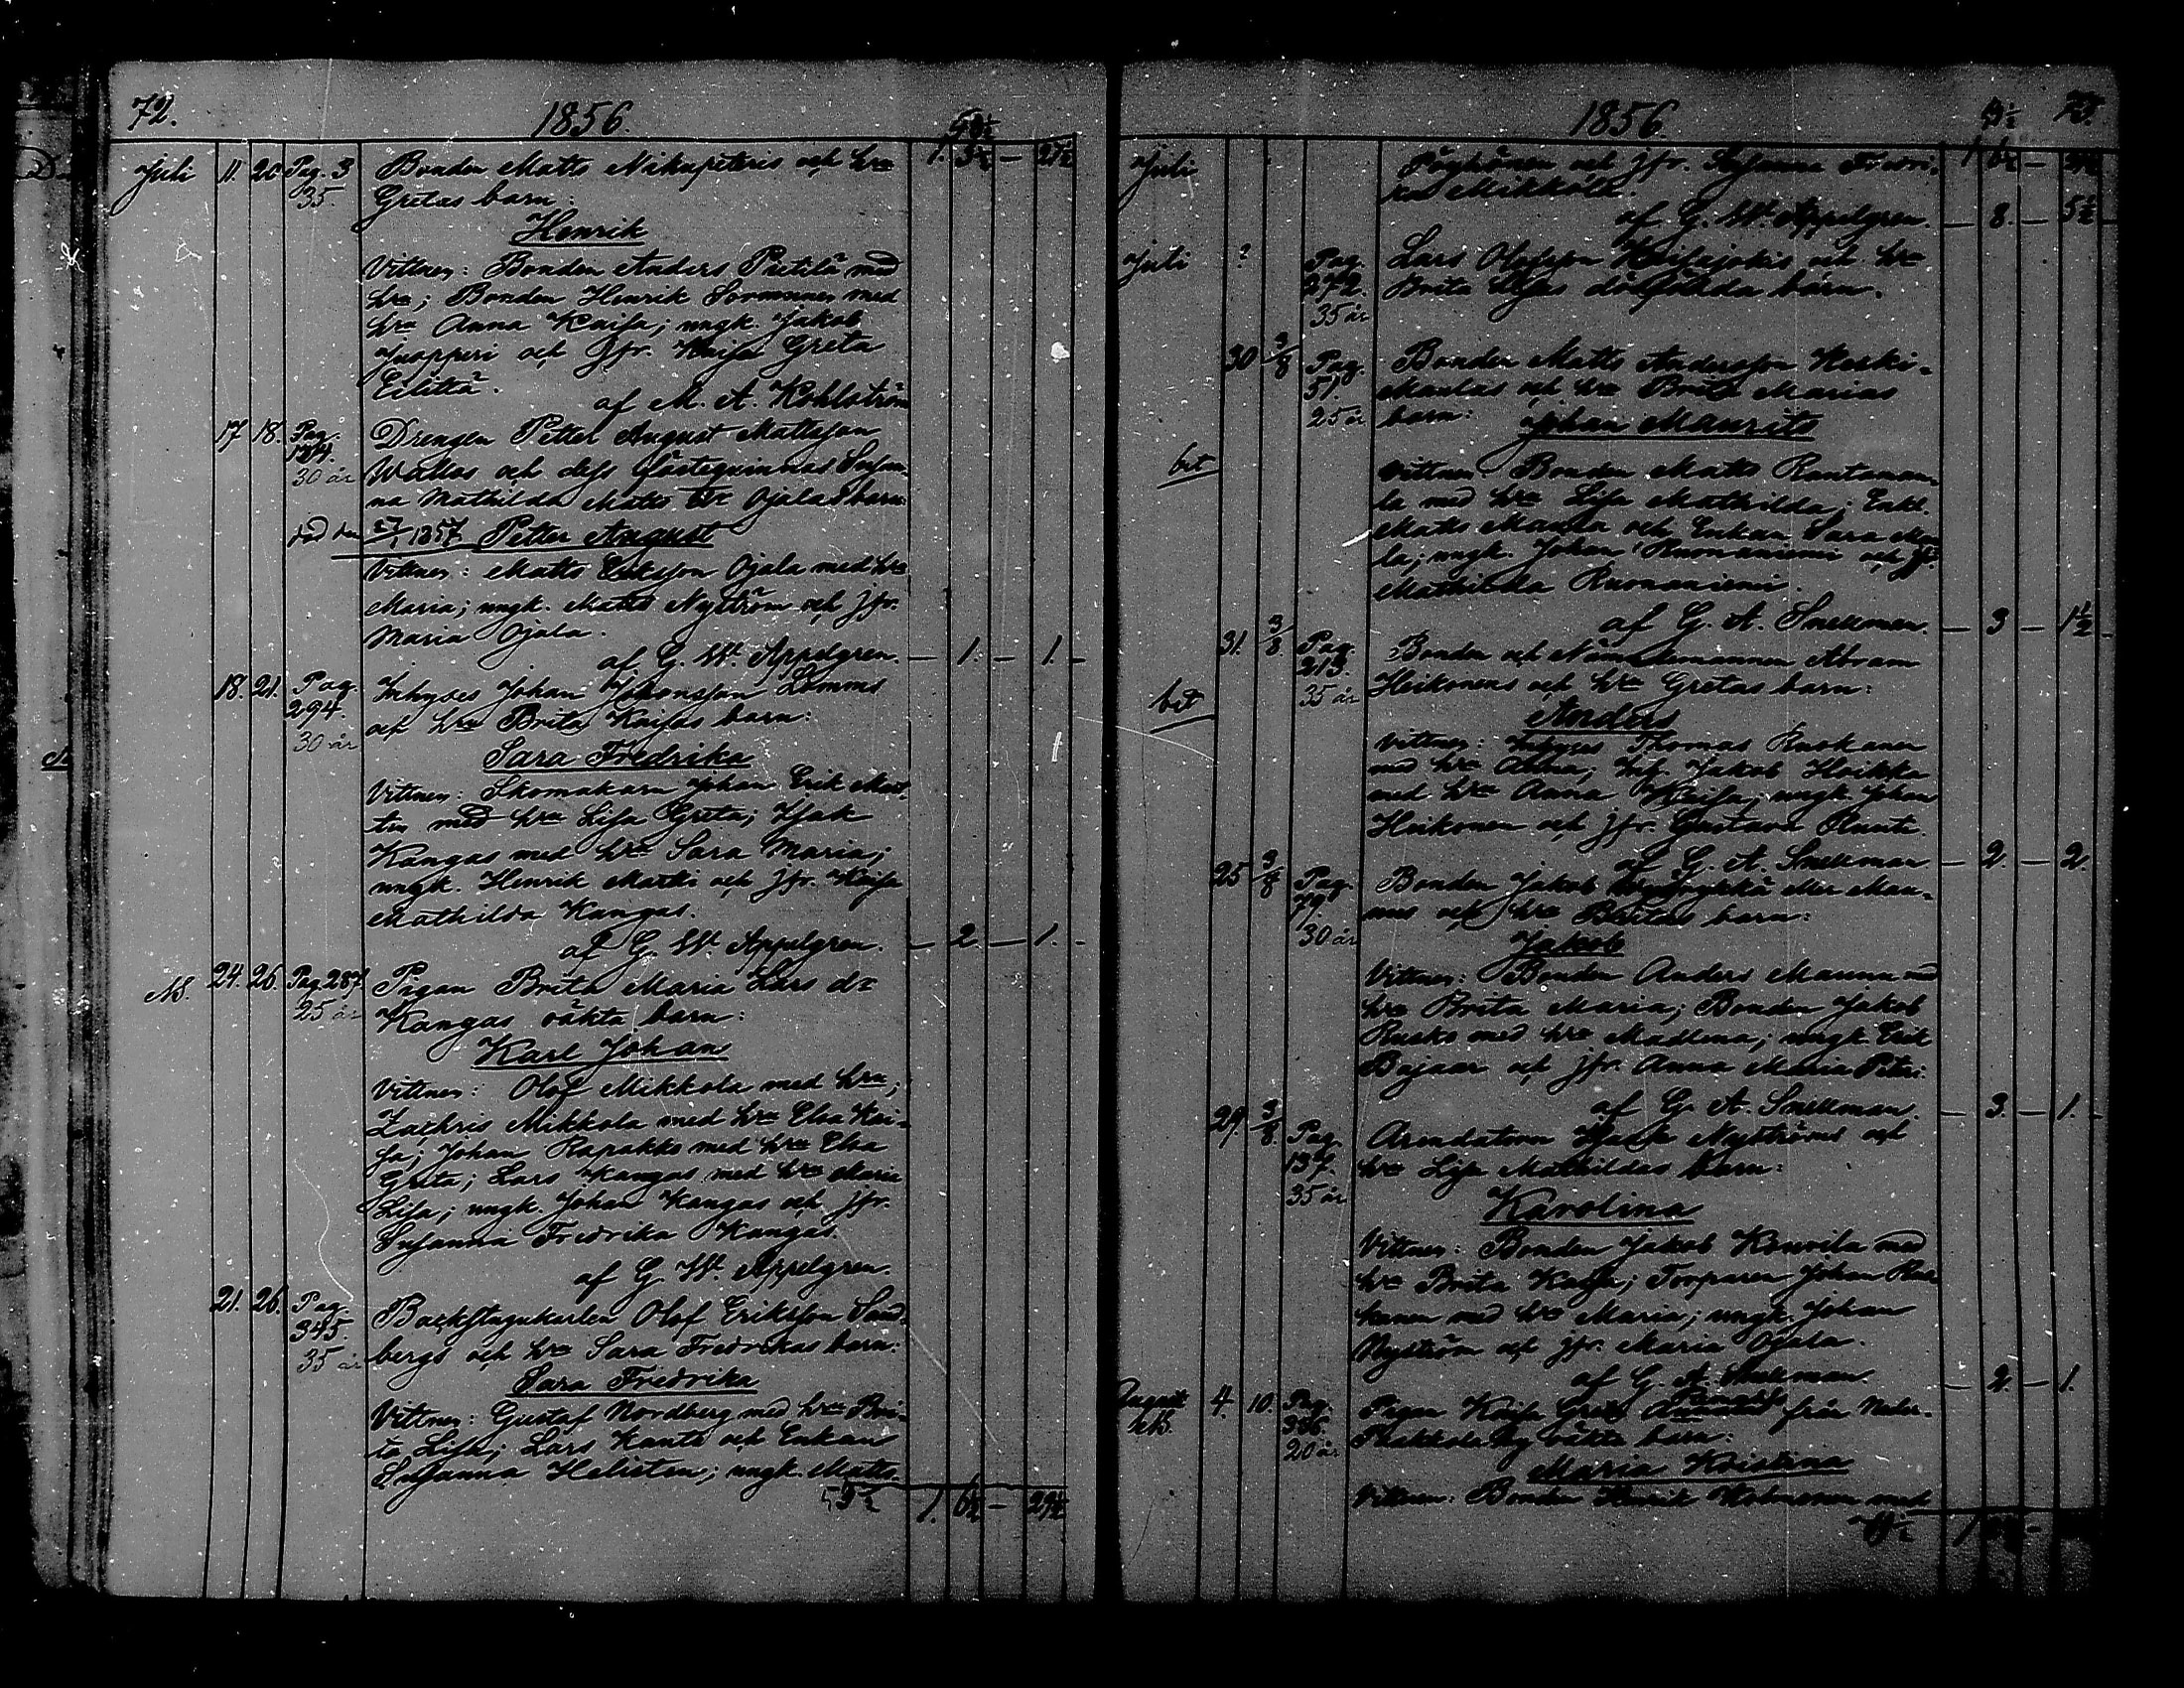 72.
1856.
Juli 11. 20 Pag. 3 Bonden Matts Nikupeteris och hru
35. Gretas barn:
Henrik
Vittnen: Bonden Anders Pietilä med
hru; Bonden Henrik Sormunen med
hru Anna Kaisa; ungk. Jakob
Juopperi och jfr. Kaisa Greta
Eilittä.
af M. A. Kohlström
17 18. Pag. Drengen Petter August Mattsson
184. och dess fästeqvinnas Susan-
30 år na Mathilda Matts dr Ojalas barn
död den 1857 Petter August
Vittnen: Matts Eriksson Ojala med hru
Maria; ungk. Matts Nyström och jfr.
Maria Ojala.
af G. W. Appelgren. — 1. — 1. —
18. 21. Pag. Inhyses Johan Johansson Lomms
294. och hru Brita Kaisas barn:
30 år
Sara Fredrika
Vittnen: Skomakarn Johan Erik Mat-
tin med hru Lisa Greta; Isak
Kangas med hru Sara Maria;
ungk. Henrik Matti och jfr. Kaisa
Mathilda Kangas.
af G. W. Appelgren. — 2. — 1. —
24. 26. Pag. 287 Pigan Brita Maria Lars dr
25 år Kangas oäkta barn:
Karl Johan
Vittnen: Olof Mikkola med hru;
Zachris Mikkola med hru Elsa Kai-
sa; Johan Rapakko med hru Elsa
Greta; Lars Kangas med hru Maria
Lisa; ungk. Johan Kangas och jfr.
Susanna Fredrika Kangas.
af G. W. Appelgren.
21. 26. Pag. Backstugukarlen Olof Eriksson Sand-
345. bergs och hru Sara Fredrikas barn:
35 år
Sara Fredrika
Vittnen: Gustaf Nordberg med hru Bri-
ta Lisa; Lars Kanto och Enkan
Susanna Helisten; ungk. Matts
1856
Juli och jfr. Susanna Fredri-
ka Mikkola.
af G. W. Appelgren. — 8. — 5½ —
Juli ? Pag. Lars Olofsson och hru
272. Brita Lisas dödfödda barn.
35 år
30 3/8 Pag. Bonden Matts Andersson Keski-
51. Maulas och hru Brita Marias
25 år barn:
Johan Maurits
bet Vittnen: Bonden Matts Rantamau-
la med hru Lisa Mathilda; Enkl.
Matts Maula och Enkan Sara Mau-
la; ungk. Johan Ruonaniemi och jfr.
Mathilda Ruonaniemi.
af G. A. Snellman. — 3 — 1½ —
31. 3/8. Pag. Bonden och Nämndemannen Abram
213. Heikonens och hru Gretas barn:
35 år
bet Anders
Vittnen: Inhyses Thomas Ruokanen
med hru Anna; Inh. Jakob Hoikka
med hru Anna Kaisa; ungk. Johan
Heikonen och jfr. Gustava Runti.
af G. A. Snellman — 2. — 2.
25 3/8 Pag. Bonden Jakob eller Man-
79. nus och hru Britas barn:
30 år
Jakob
Vittnen: Bonden Anders Mannu med
hru Brita Maria; Bonden Jakob
Rusko med hru Madlena; ungk. Erik
Bajaar och jfr. Anna Maria Peteri.
af G. A. Snellman. — 3. — 1. —
29. 3/8. Pag. Arendatorn Isack Nyströms och
137. hru Lisa Mathildas barn:
35 år
Karolina
Vittnen: Bonden Jakob Kouvila med
hru Brita Kaisa; Torparen Johan Ruo-
kanen med hru Maria; ungk. Johan
Nyström och jfr. Maria Ojala.
af G. A. Snellman. — 2. — 1.
August 4. 10. Pag. Pigan Kaisa Greta från Neder-
356. oäkta barn:
20 år
Maria Kristina
Vittnen: Bonden Henrik med